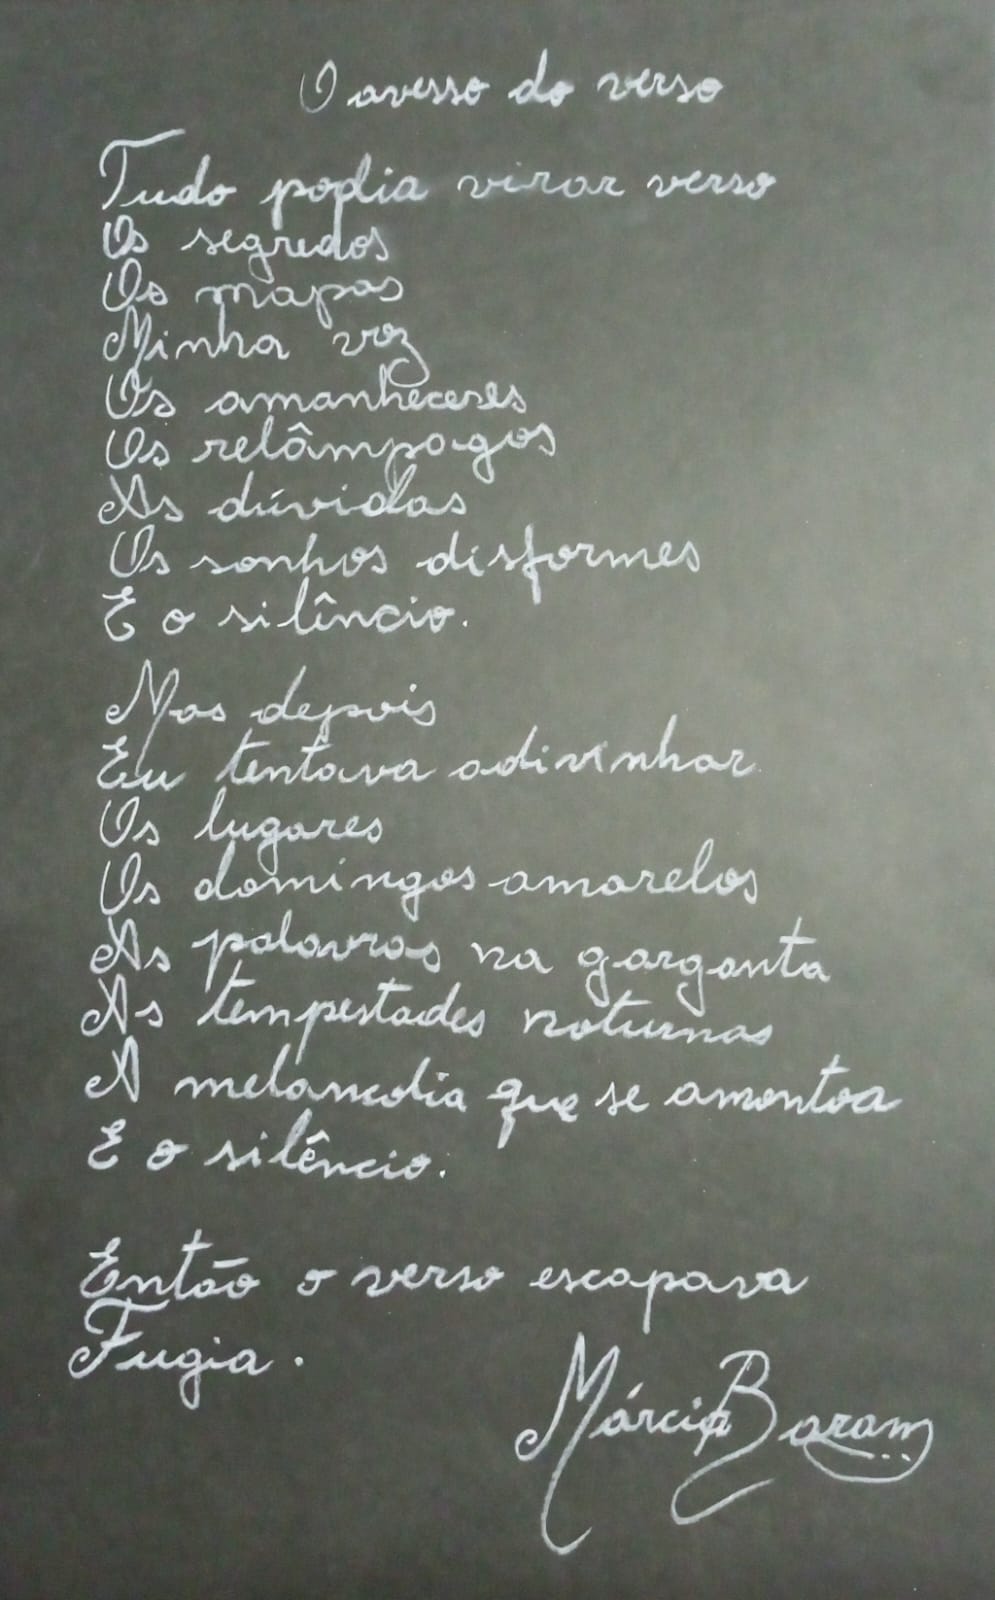 O avesso do verso
Tudo podia virar verso
Os segredos
Os mapas
Minha voz
Os amanheceres
Os relâmpagos
As dúvidas
Os sonhos disformes
E o silêncio.
Mas depois
Eu tentava adivinhar
Os lugares
Os domingos amarelos
As palavras na garganta
As tempestades noturnas
A melancolia que se amontoa
E o silêncio.
Então o verso escapava
Fugia.
Márcia Baram